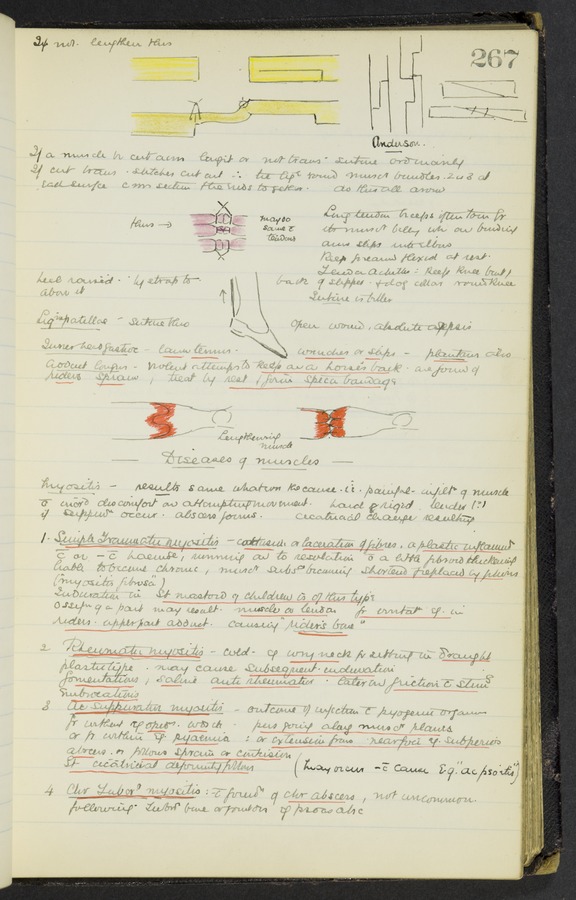 If not. lengthen thus
267
Anderson.
If a muscle be cut across longit or not trans: suture ordinarily
If cut trans. stitches cut out ∴ tie lig. round muscle bundles. 2 or 3 at
each surface & then suture the ends together. as this all around
thus →
may do
same c̄
tendons
Long tendon biceps often torn fr
its muscle belly
arm slips into elbow
Keep forearm flexed at rest.
Tendo Achilles: Keep knee bent,
heel raised. by strap to back of slipper & dog collar round knee
above it
Suture is better
Lig. patellae - suture thus
open wound. absolute asepsis
Inner head gastroc - lawn tennis - wrenches or slips - plantaris also
Adduct longus - violent attempts to keep on a horse's back. are forms of
riders sprain, treat by rest, & firm spica bandage
Lengthening
muscle
— Diseases of muscles —
Myositis - results same whatever the cause. i.e. painful infilt. of muscle
c̄ discomfort on attempting movement. hard & rigid, tender
if suppurn occur. abscess forms. cicatricial change resulting
1. Simple Traumatic myositis - contusion or laceration of fibres. a plastic inflammn
c̄ or - c̄ haemorr, running on to resolution c̄ a little fibrous thickening
liable to become chronic, muscle subst becoming shortened & replaced by fibrous
(myositis fibrosa)
Induration in St. mastoid of children is of this type
Ossifn of a part may result. muscle or tendon fr irritatn eg. in
riders. upper part adduct. causing "rider's bone"
2 Rheumatic myositis - cold - eg wry neck fr sitting in draught
plastic type. may cause subsequent induration
fomentations, salines anti rheumatics. later on friction c̄ stimg
embrocations
3 Ac Suppurative myositis - outcome of infection c̄ pyogenic organism
fr without eg opern. wound. pus going along muscle planes
or fr within eg pyaemia: or extension from eg. subperios
abscess. or follows sprain or contusion
St cicatricial deformity follows (may occur - c̄ cause e.g. "ac psoitis")
4 Chr Tuberr myositis: c̄ formn of chr abscess, not uncommon.
following Tuberr bone or joints eg psoas absc